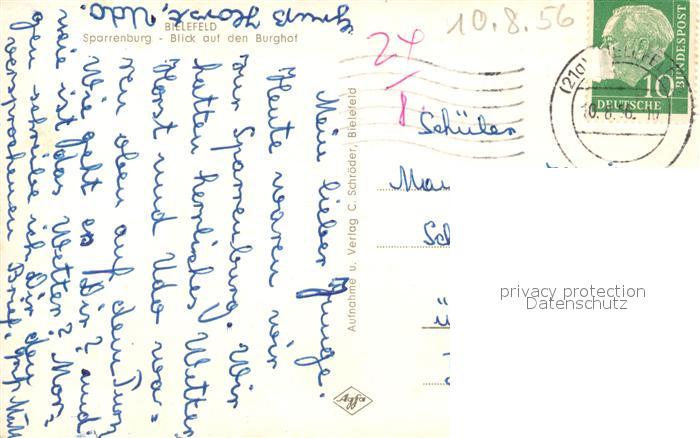 BIELEFELD
Sparrenburg - Blick auf den Burghof
10.8.56
24
/
8.
BUNDESPOST
10
DEUTSCHE
(21a)
10.8.56.
Mein lieber Junge.
Heute waren wir
zur Sparrenburg. Wir
hatten herrliches Wetter
Horst und Udo wa-
ren oben auf dem Turm
Wie geht es Dir? und
wie ist das Wetter? Mor-
gen schreibe ich Dir den
versprochenen Brief.
Gruß Horst, Udo.
Aufnahme u. Verlag C. Schröder, Bielefeld
Schüler
Agfa
privacy protection
Datenschutz